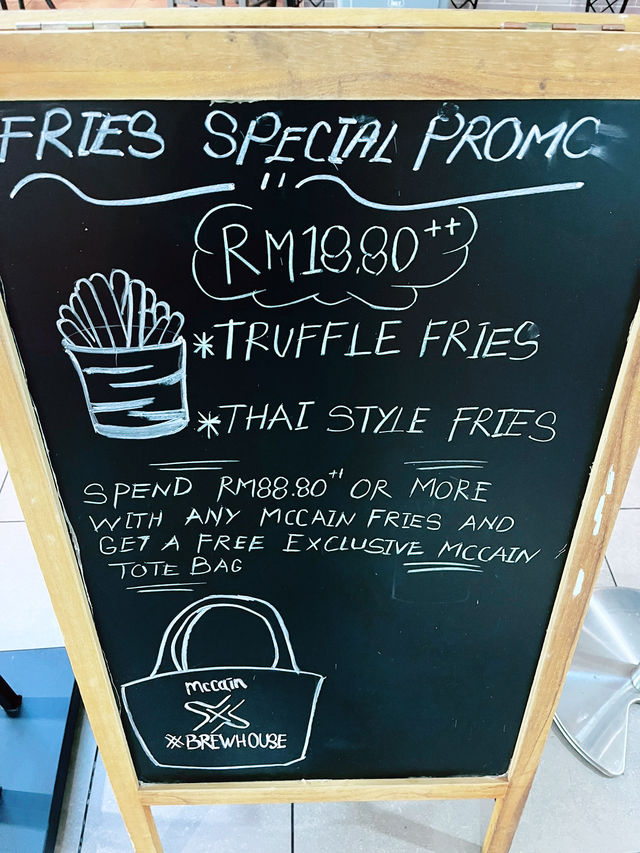 FRIES SPECIAL PROMO
RM18.80++
*TRUFFLE FRIES
*THAI STYLE FRIES
SPEND RM88.80++ OR MORE
WITH ANY MCCAIN FRIES AND
GET A FREE EXCLUSIVE MCCAIN
TOTE BAG
McCain
BREWHOUSE